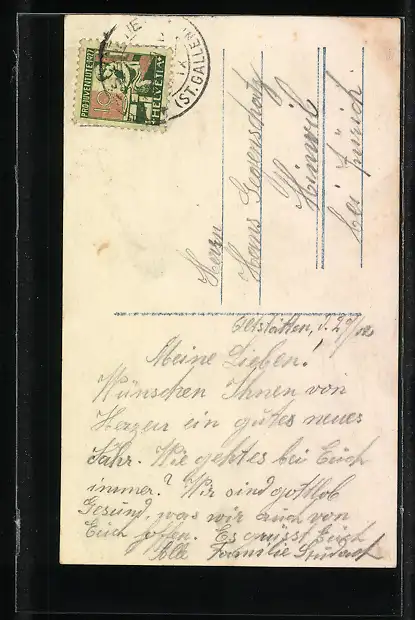 PRO JUVENTUTE 1927
10
HELVETIA
(ST. GALLEN)
Herrn
Hans
Hinwil
bei Zürich
Altstätten, d. 29/12.
Meine Lieben!
Wünschen Ihnen von
Herzen ein gutes neues
Jahr. Wie geht es bei Euch
immer? Wir sind gottlob
Gesund, was wir auch von
Euch hoffen. Es grüsst Euch
Alle Familie